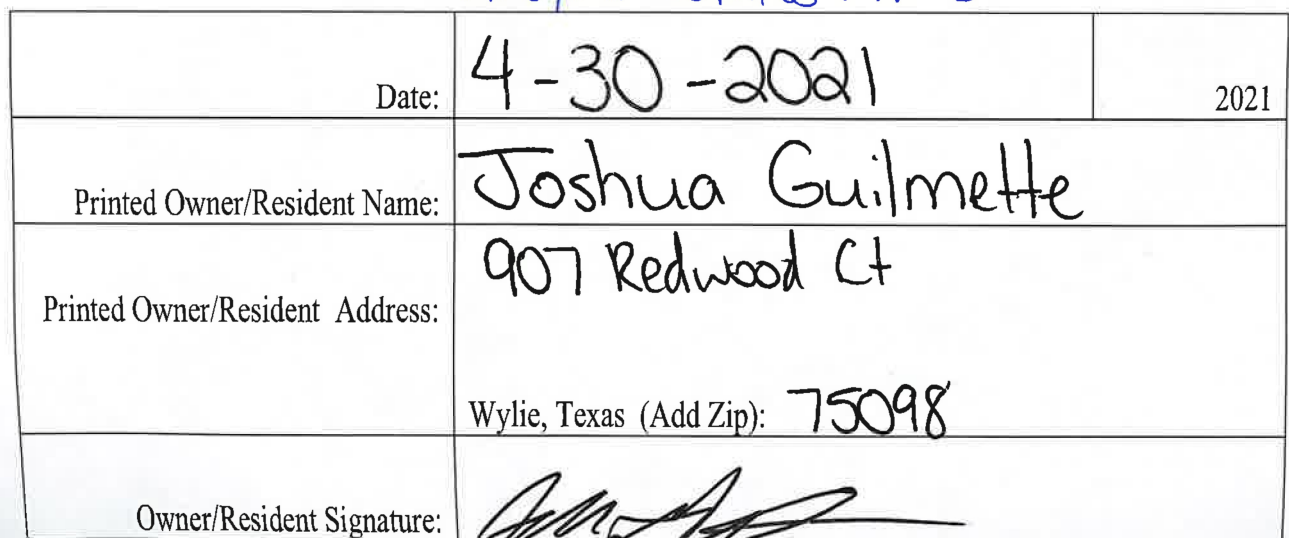 Date: 4-30-2021 2021
Printed Owner/Resident Name: Joshua Guilmette
907 Redwood Ct
Printed Owner/Resident Address:
Wylie, Texas (Add Zip): 75098
Owner/Resident Signature: